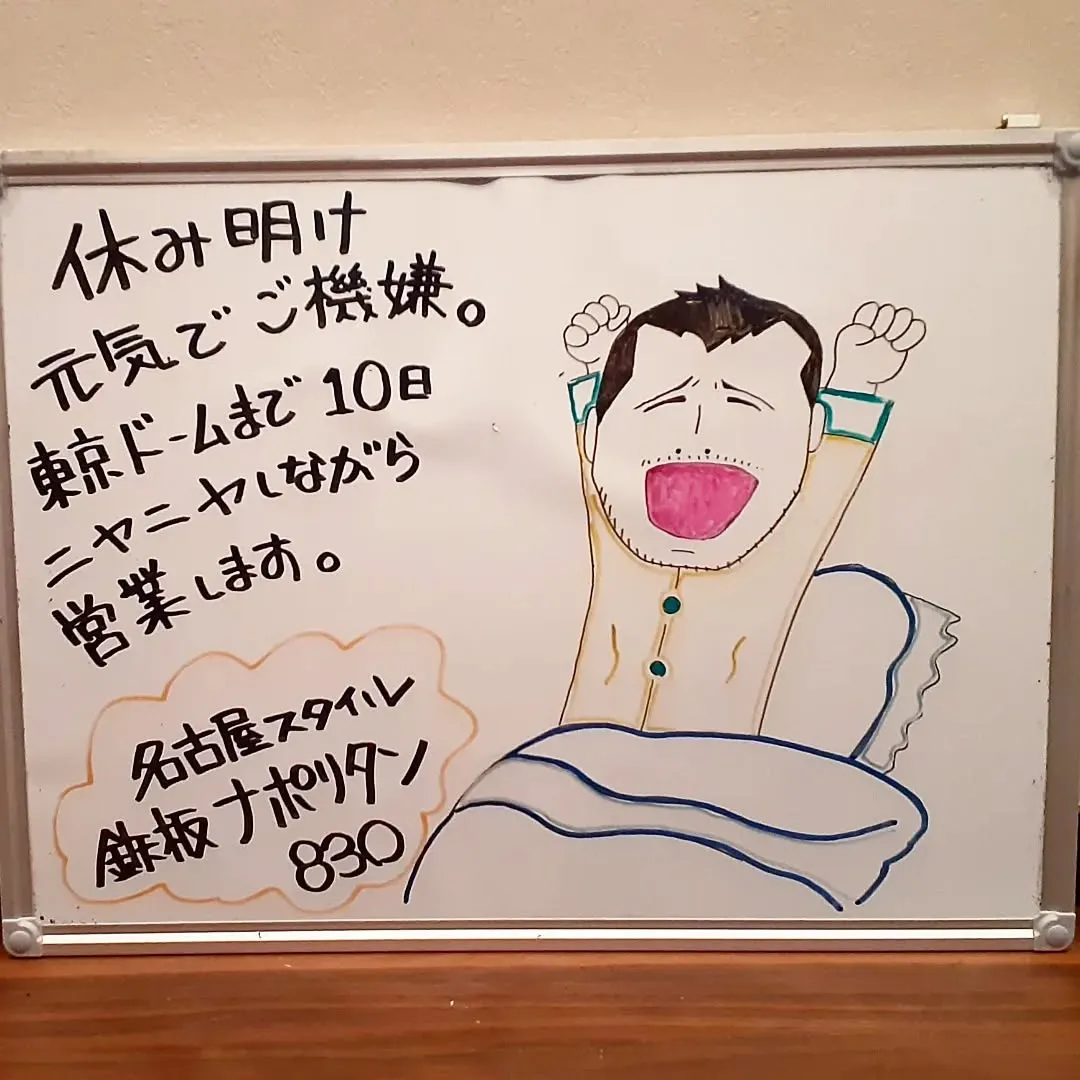 休み明け
元気でご機嫌。
東京ドームまで10日
ニヤニヤしながら
営業します。
名古屋スタイル
鉄板ナポリタン
830